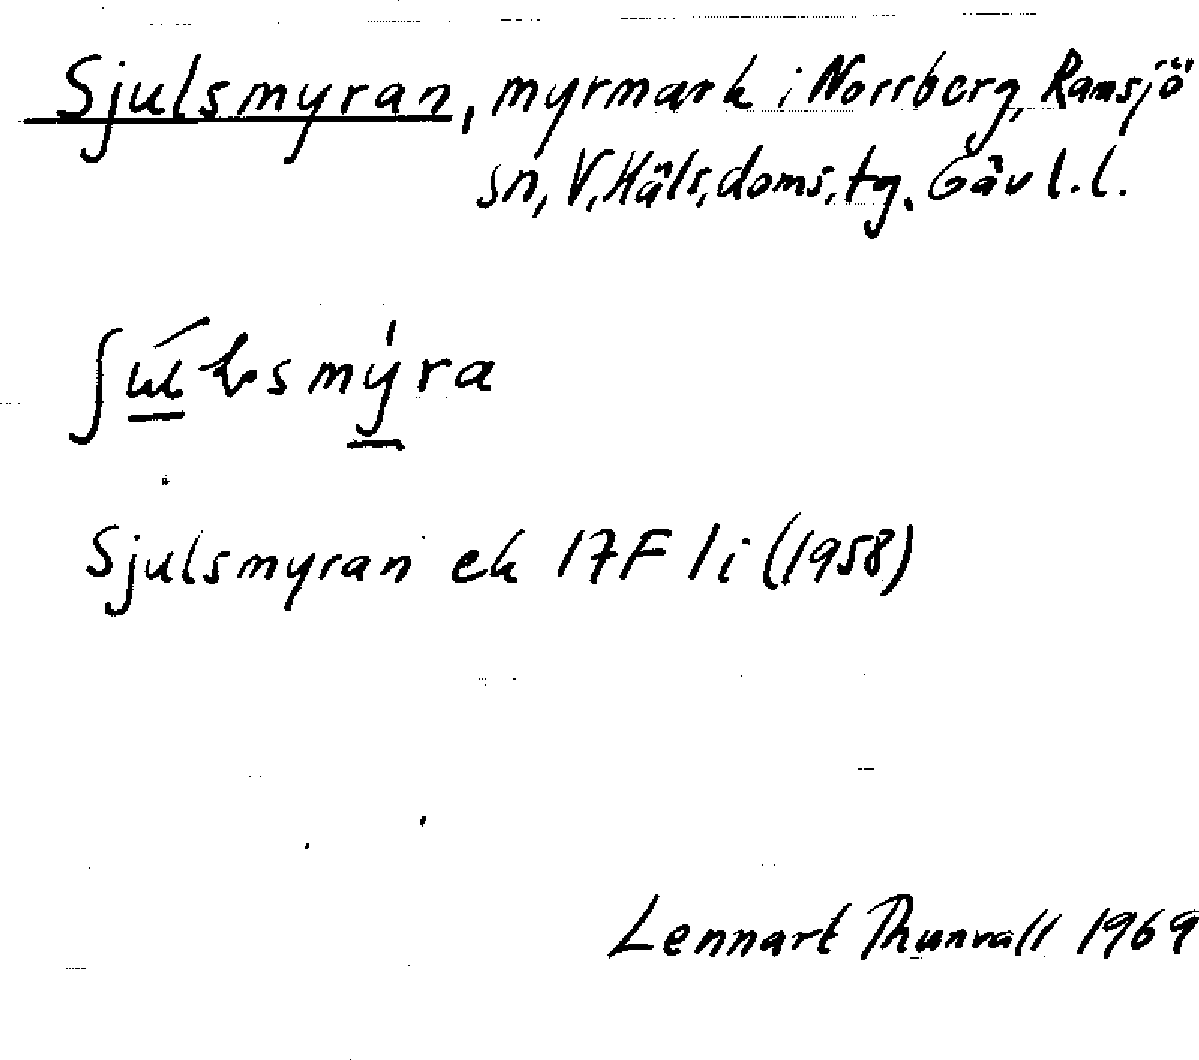 Sjulsmyran, myrmark i Norrberg, Ramsjö
sn, V. Häls. doms. tg. Gävl. l.
Sjulsmyran ek 17F 1i (1958)
Lennart Thunvall 1969